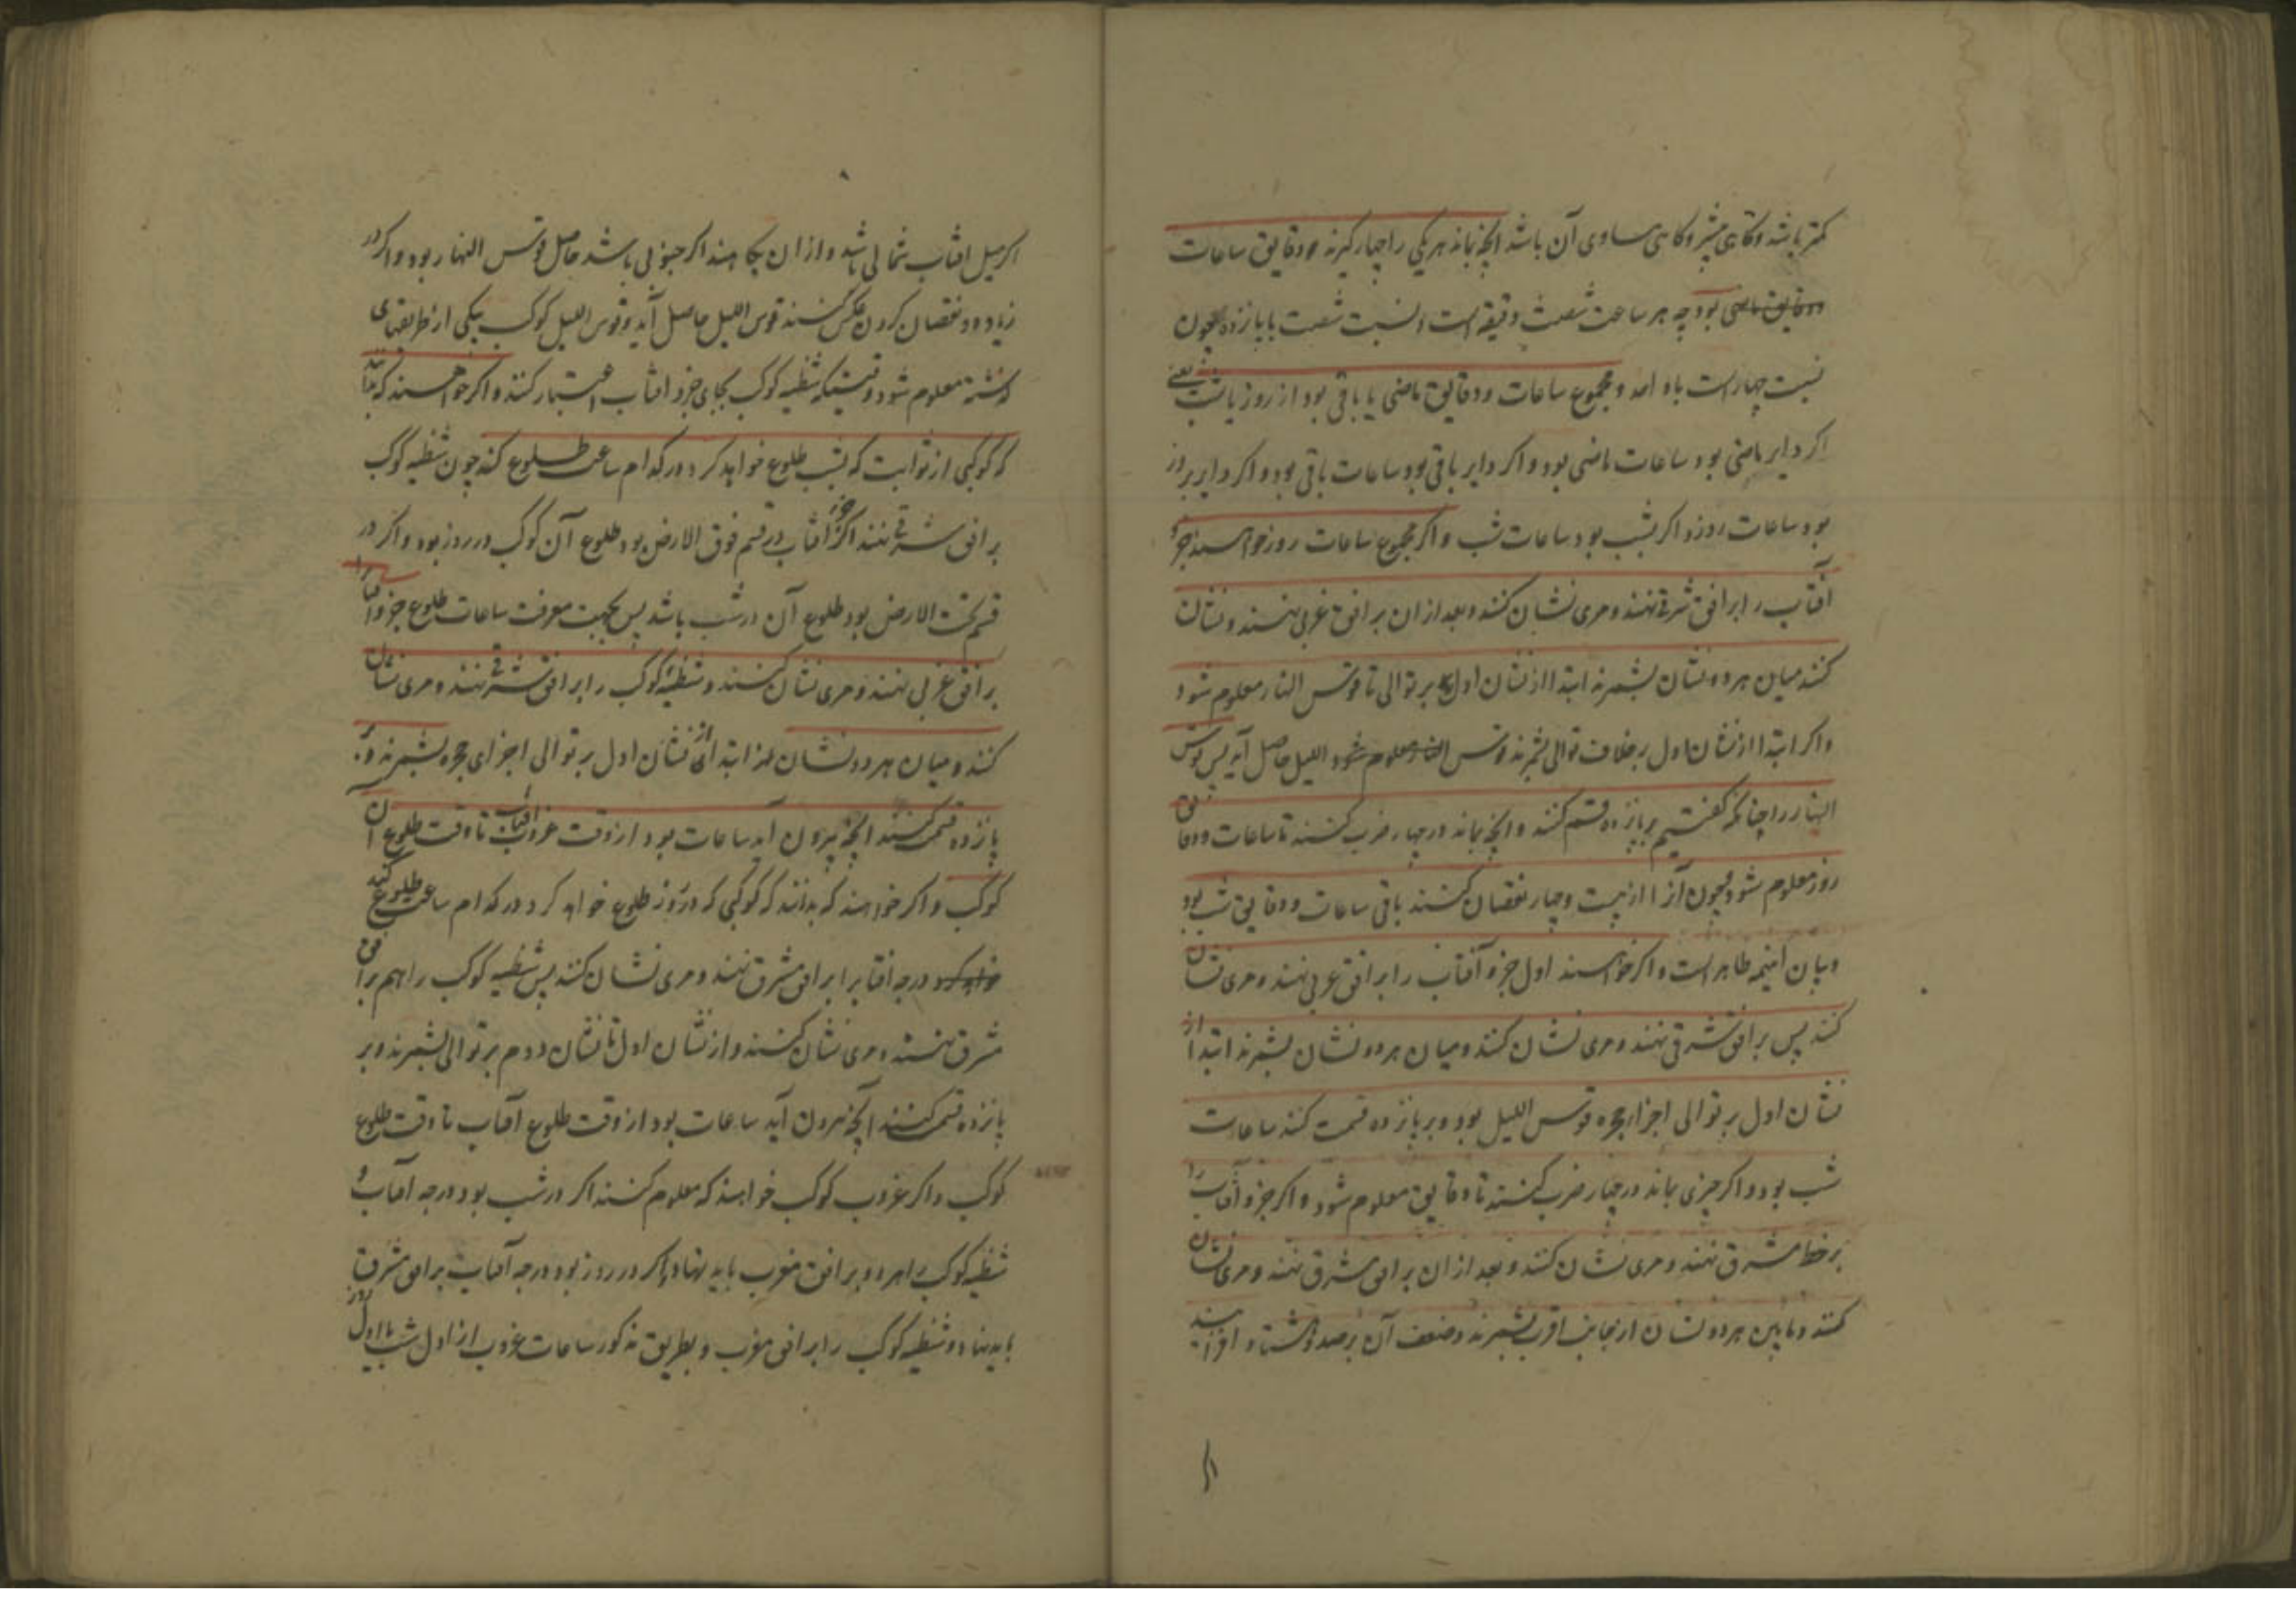 کمتر باشد و کاهی بیشتر و کاهی مساوی آن باشد آنچه بماند هر یکی را چهار کیرند دقایق ساعات
ودقایق ماضی بود چه هر ساعت شصت دقیقه است و نسبت شصت با پانزده چون
نسبت چهار است با و مجموع ساعات و دقایق ماضی یا باقی بود از روز یا شب یعنی
اکر دایر ماضی بود ساعات ماضی بود و اکر دایر باقی بود ساعات باقی بود و اکر دایر بروز
بود ساعات روز و اکر بشب بود ساعات شب و اکر مجموع ساعات روز خواهند جزو
آفتاب را بر افق شرقی نهند و مری نشان کنند و بعد از ان بر افق غربی نهند و نشان
کنند میان هر دو نشان بشمرند ابتدا از نشان اول بر توالی تا قوس النهار معلوم شود
و اکر ابتدا از نشان اول بر خلاف توالی شمرند قوس النهار معلوم شود اللیل حاصل آید پس قوس
النهار را چنانکه کفتیم بر پانزده قسم کنند و آنچه بماند در چهار ضرب کنند تا ساعات و دقایق
روز معلوم شود و چون آنرا از بیست و چهار نقصان کنند باقی ساعات و دقایق شب بود
و بیان اینهمه ظاهر است و اکر خواهند اول جزو آفتاب را بر افق غربی نهند و مری نشان
کنند پس بر افق شرقی نهند و مری نشان کنند و میان هر دو نشان بشمرند ابتدا از
نشان اول بر توالی اجزا حجره قوس اللیل بود و بر پانزده قسمت کنند ساعات
شب بود و اکر چیزی بماند در چهار ضرب کنند تا دقایق معلوم شود و اکر جزو آفتاب را
بر خط مشرق نهند و مری نشان کنند و بعد از ان بر افق مشرق نهند و مری نشان
کنند و مابین هر دو نشان از جانب اقرب بشمرند و ضعف آن بر صد و هشتاد افزایند
اکر میل افتاب شمالی باشد و از ان بکاهند اکر جنوبی باشد حاصل قوس النهار بود و اکر در
زیاده و نقصان کردن عکس کنند قوس اللیل حاصل آید و قوس اللیل کوکب بیکی از طریقهای
کذشته معلوم شود وقتیکه شظیه کوکب بجای جزو افتاب اعتبار کنند و اکر خواهند که بدانند
که کوکبی از ثوابت که بشب طلوع خواهد کرد در کدام ساعت طلوع کند چون شظیه کوکب
بر افق شرقی نهند اکر جزو آفتاب در قسم فوق الارض بود طلوع آن کوکب در روز بود و اکر در
قسم تحت الارض بود طلوع آن در شب باشد پس بجهت معرفت ساعات طلوع جزو آفتاب را
بر افق غربی نهند و مری نشان کنند و شظیه کوکب را بر افق شرقی نهند و مری نشان
کنند و میان هر دو نشان ابتدا از نشان اول بر توالی اجزای حجره بشمرند و بر
پانزده قسمت کنند آنچه بیرون آید ساعات بود از وقت غروب آفتاب تا وقت طلوع آن
کوکب و اکر خواهند که بدانند که کوکبی که در روز طلوع خواهد کرد در کدام ساعت طلوع کند
خواهد کرد درجه افتاب را بر افق مشرق نهند و مری نشان کنند پس شظیه کوکب را هم بر افق
مشرق نهند و مری نشان کنند و از نشان اول تا نشان دوم بر توالی بشمرند و بر
پانزده قسمت کنند آنچه بیرون آید ساعات بود از وقت طلوع آفتاب تا وقت طلوع
کوکب و اکر غروب کوکب خواهند که معلوم کنند اکر در شب بود درجه آفتاب و
شظیه کوکب را هر دو بر افق مغرب باید نهاد و اکر در روز بود درجه آفتاب بر افق مشرق
باید نهاد و شظیه کوکب را بر افق مغرب و بطریق مذکور ساعات غروب از اول شب یا اول روز